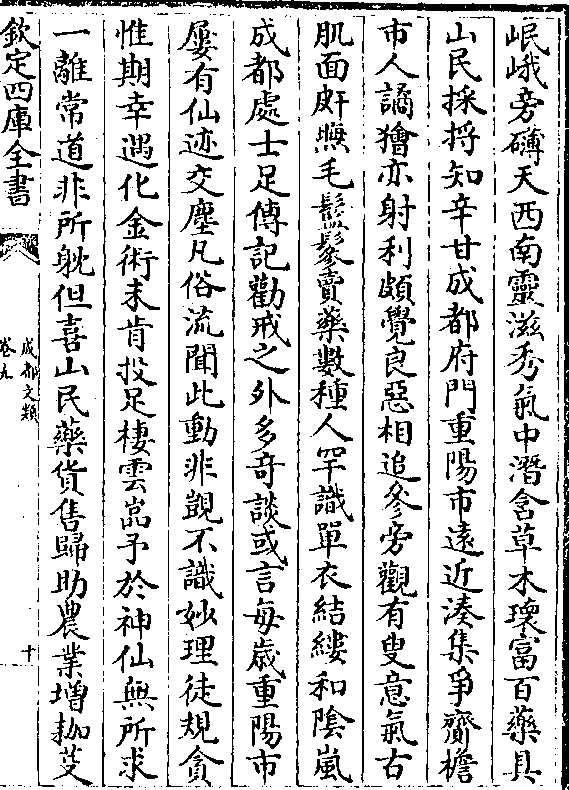 岷峨旁礴天西南靈滋秀氣中潛含草木瓌富百藥具
山民採捋知辛甘成都府門重陽市遠近湊集爭齎檐
市人譎獪亦射利頗覺良惡相追參旁觀有叟意氣古
肌面皯𪒟毛鬖鬖賣藥數種人罕識單衣結縷和陰嵐
成都處士足傳記勸戒之外多奇談或言每歲重陽市
屢有仙迹交塵凡俗流聞此動非覬不識妙理徒規貪
惟期幸遇化金術未肯投足棲雲嵓予於神仙無所求
一離常道非所躭但喜山民藥貨售歸助農業增耞芟
欽定四庫全書
成都文類
卷九
十